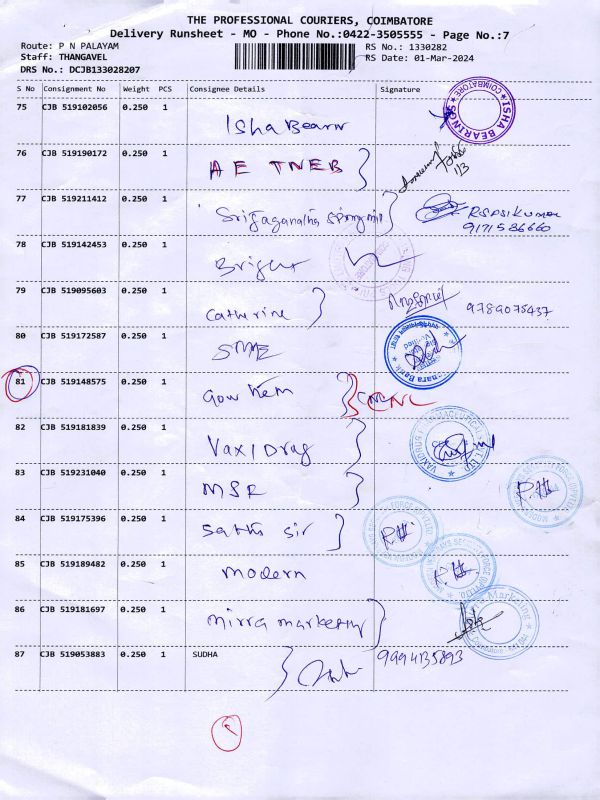 THE PROFESSIONAL COURIERS, COIMBATORE
Delivery Runsheet - MO - Phone No.:0422-3505555 - Page No.:7
Route: P N PALAYAM RS No.: 1330282
Staff: THANGAVEL RS Date: 01-Mar-2024
DRS No.: DCJB133028207
S No Consignment No Weight PCS Consignee Details Signature
75 CJB 519102056 0.250 1 Isha Bearin ISHA BEARINGS COIMBATORE
76 CJB 519190172 0.250 1 A E TNEB 1/3
77 CJB 519211412 0.250 1 Srijaganatha RSPSIKUMAR
9171586660
78 CJB 519142453 0.250 1
79 CJB 519095603 0.250 1 Catherine 9789075437
80 CJB 519172587 0.250 1 SME Bank
81 CJB 519148575 0.250 1 Gow Kem CNL
82 CJB 519181839 0.250 1 Vaxi Drug
83 CJB 519231040 0.250 1 MSR
84 CJB 519175396 0.250 1 Sathi Sir
85 CJB 519189482 0.250 1 Modern
86 CJB 519181697 0.250 1 Mirra Marketing
87 CJB 519053883 0.250 1 SUDHA 9994135893